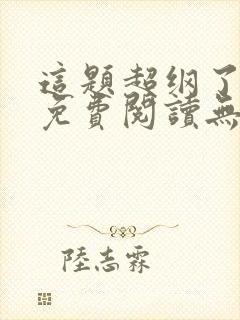 這題超纲了
免費閱讀無
陸志霖